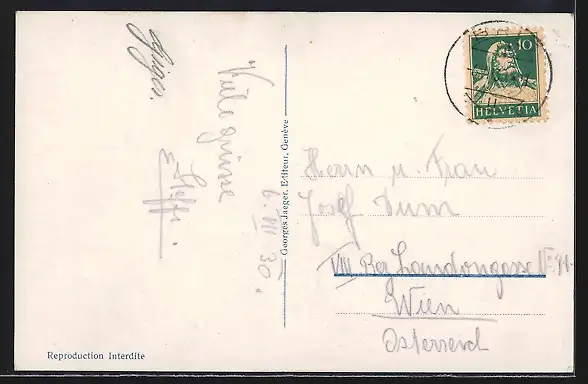 Viele Grüsse
u
Steffi.
6. VII 30.
Georges Jaeger, Editeur, Genève
10
HELVETIA
Herrn u. Frau
Josef Dum
VIII Bez Laudongasse
Wien
Österreich
Reproduction Interdite